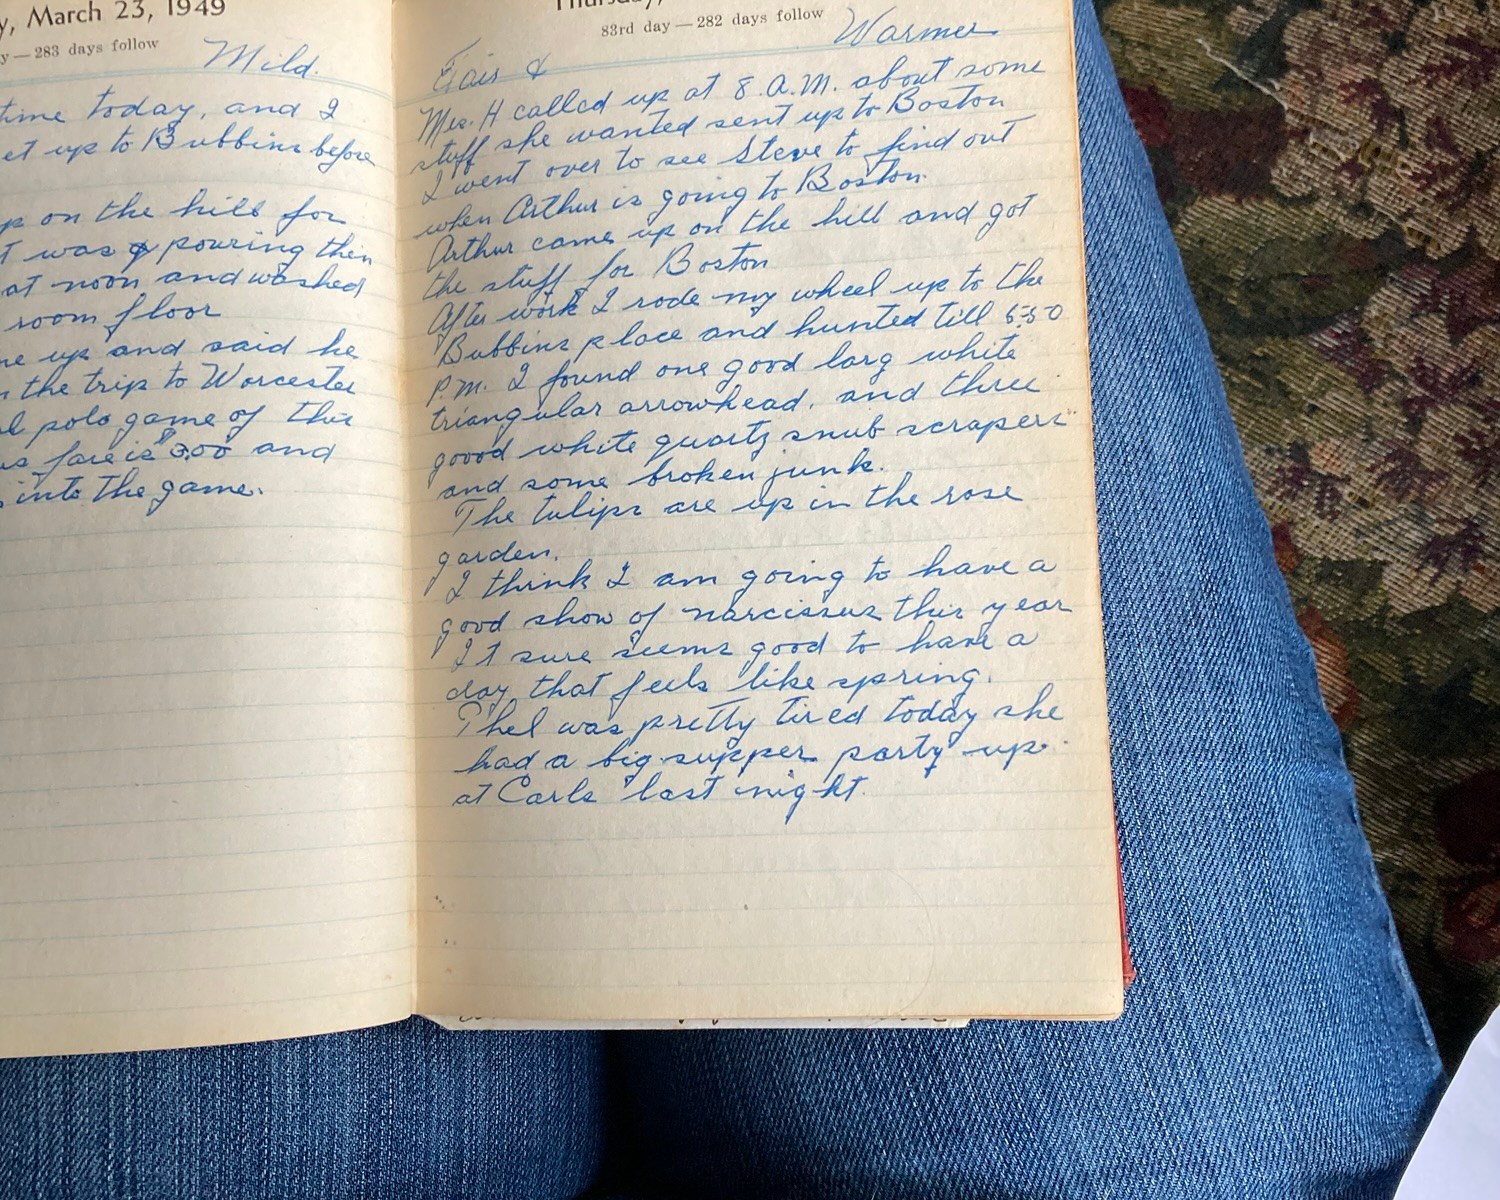 y, March 23, 1949
y — 283 days follow
Mild.
time today, and I
et up to Bubbins before
p on the hill for
t was pouring then
at noon and washed
room floor
me up and said he
n the trip to Worcester
al polo game of this
us fare is $3.00 and
into the game.
Thursday,
83rd day — 282 days follow
Fair & Warmer
Mrs. H called up at 8 A.M. about some
stuff she wanted sent up to Boston
I went over to see Steve to find out
when Arthur is going to Boston.
Arthur came up on the hill and got
the stuff for Boston
After work I rode my wheel up to the
Bubbins place and hunted till
P.M. I found one good larg white
triangular arrowhead. and three
goood white quartz snub scrapers
and some broken junk.
The tulips are up in the rose
garden.
I think I am going to have a
good show of narcissus this year
It sure seems good to have a
day that feels like spring.
Thel was pretty tired today she
had a big supper party up
at Carls last night.